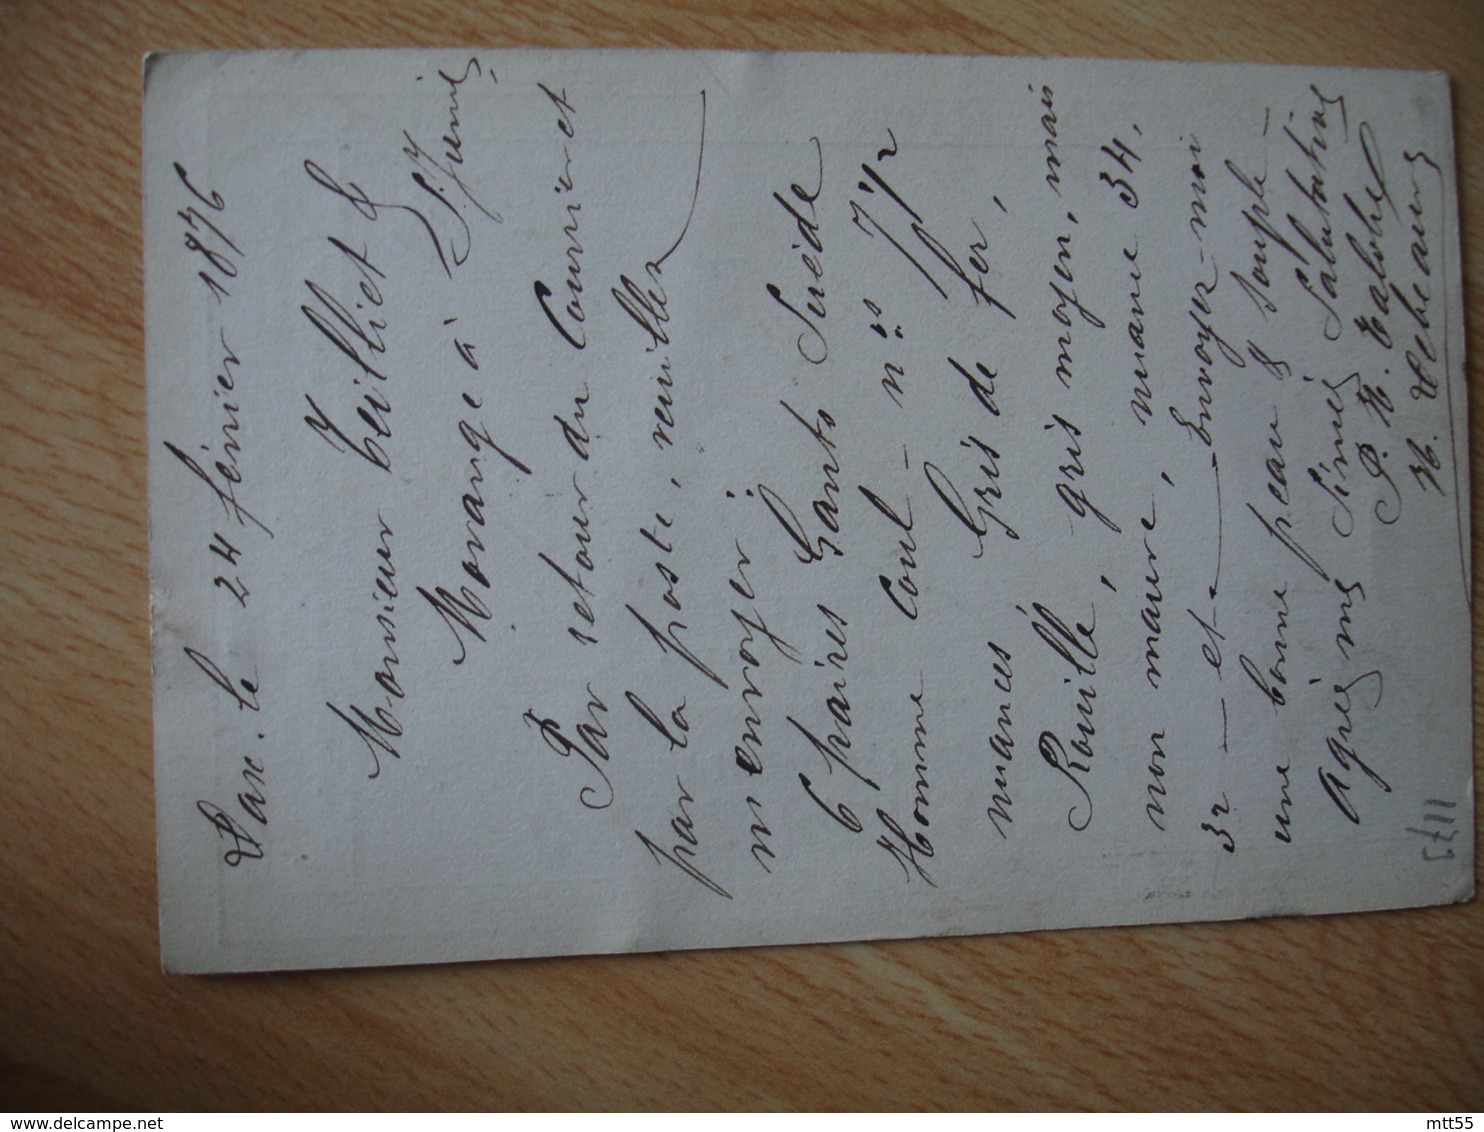 Dax. le 24 février 1876
Monsieur Teilliet &
Morange à St Junien
Par retour du Courrier et
par la poste, veuillez
m'envoyer :
6 paires Gants Suède
Homme coul - n°s 7 1/2
nuances Gris de fer,
Rouillé, gris moyen, mais
non mauve, nuance 34,
32 - et - Envoyez-moi
une bonne peau & souple -
agréez mes Sincères Salutations
P. H.
H.
1175
mtt55